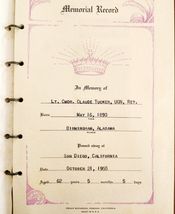 Memorial Record
In Memory of
Lt. Cmdr. Claude Tucker, USN, Ret.
Born May 16, 1893
Birmingham, Alabama
Passed away at
San Diego, California
October 21, 1955
Aged 62 years 5 months 5 days